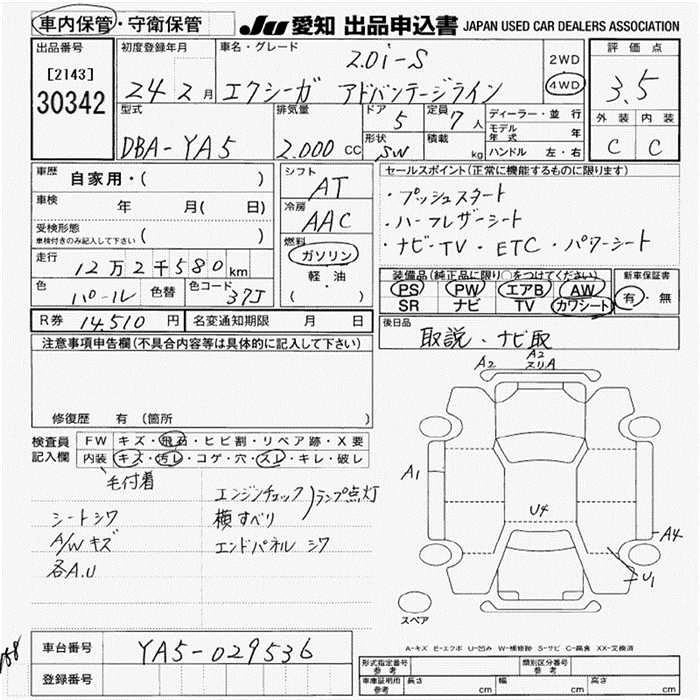 車内保管・守衛保管 JU 愛知 出品申込書 JAPAN USED CAR DEALERS ASSOCIATION
出品番号 [2143] 30342
初度登録年月 24 2月
車名・グレード 2.0i-S
エクシーガ アドバンテージライン
2WD
4WD
評価点 3.5
型式 DBA-YA5
排気量 2.000 CC
ドア 5
定員 7人
形状 SW
積載 kg
ディーラー・並行
モデル年式 年
ハンドル 左・右
外装 内装
C C
車歴 自家用・( )
車検 年 月( 日)
受検形態 ( )
車検付きのみ記入して下さい
走行 12万2千580km
色 パール 色替 色コード 37J
シフト AT
冷房 AAC
燃料 ガソリン
軽・油
( )
セールスポイント(正常に機能するものに限ります)
・プッシュスタート
・ハーフレザーシート
・ナビ・TV・ETC・パワーシート
装備品(純正品に限り○をつけてください) 新車保証書
PS PW エアB AW 有・無
SR ナビ TV カワシート
R券 14,510 円 名変通知期限 月 日
後日品 取説、ナビ取
注意事項申告欄(不具合内容等は具体的に記入して下さい)
修復歴 有 (箇所 )
検査員記入欄 FW キズ・飛石・ヒビ割・リペア跡・X要
内装 キズ・汚レ・コゲ・穴・スレ・キレ・破レ
毛付着
シートシワ
A/Wキズ
各A.U
エンジンチェック ランプ点灯
横すべり
エンドパネル シワ
A2 A2
スリA
A1
U4
A4
U1
スペア
A-キズ E-エクボ U-凹み W-補修跡 S-サビ C-腐食 XX-交換済
車台番号 YA5-029536
登録番号
形式指定番号 参考 類別区分番号 参考
車庫証明用 参考 長さ cm 幅 cm 高さ cm